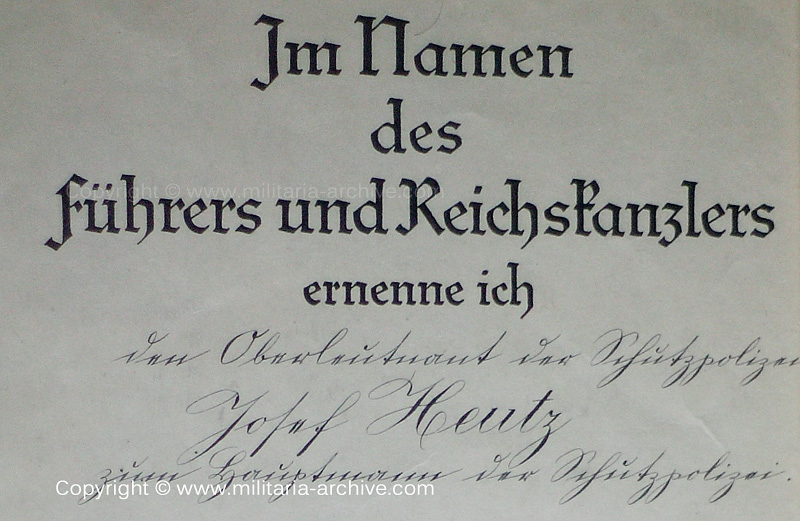 Im Namen
des
Copyright © www.militaria-archive.com
Führers und Reichskanzlers
ernenne ich
den Oberleutnant der Schutzpolizei
Josef Heutz
zum Hauptmann der Schutzpolizei.
Copyright © www.militaria-archive.com